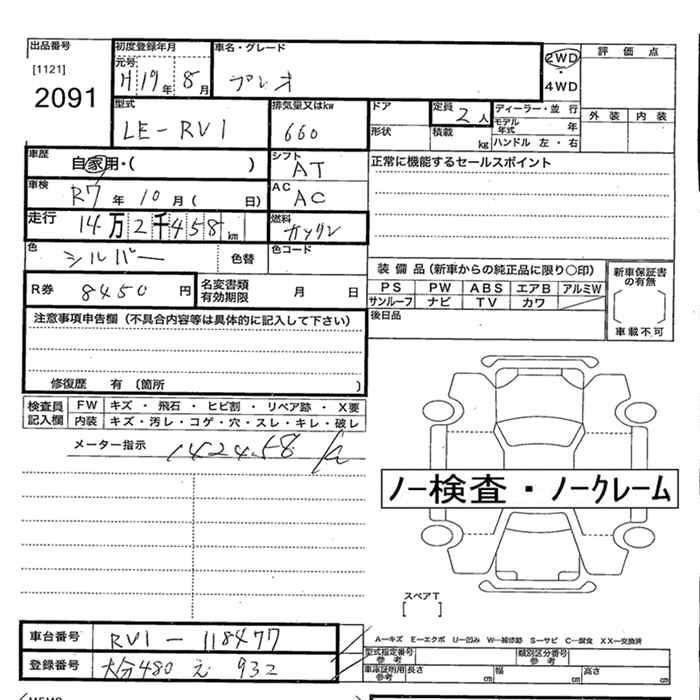 出品番号 初度登録年月 車名・グレード 評価点
[1121] 元号 2WD
2091 H19年8月 プレオ 4WD 外装 内装
型式 排気量又はkw ドア 定員 2人 ディーラー・並行
LE-RV1 660 形状 積載 kg モデル年式 年
ハンドル 左・右
車歴 自家用・( ) シフト AT 正常に機能するセールスポイント
車検 R7年10月( 日) AC AC
走行 14万2千458km 燃料 ガソリン
色 シルバー 色替 色コード
装備品(新車からの純正品に限り○印) 新車保証書の有無
R券 8450円 名変書類有効期限 月 日 PS PW ABS エアB アルミW
サンルーフ ナビ TV カワ
注意事項申告欄(不具合内容等は具体的に記入して下さい) 後日品 車載不可
修復歴 有 〔箇所 〕
検査員記入欄 FW キズ・飛石・ヒビ割・リペア跡・X要
内装 キズ・汚レ・コゲ・穴・スレ・キレ・破レ
メーター指示 142458 k
ノー検査・ノークレーム
スペアT
[ ]
車台番号 RV1-118477 A―キズ E―エクボ U―凹み W―補修跡 S―サビ C―腐食 XX―交換済
型式指定番号参考 類別区分番号参考
登録番号 大分480 え 932 車庫証明用参考 長さ cm 幅 cm 高さ cm
MEMO